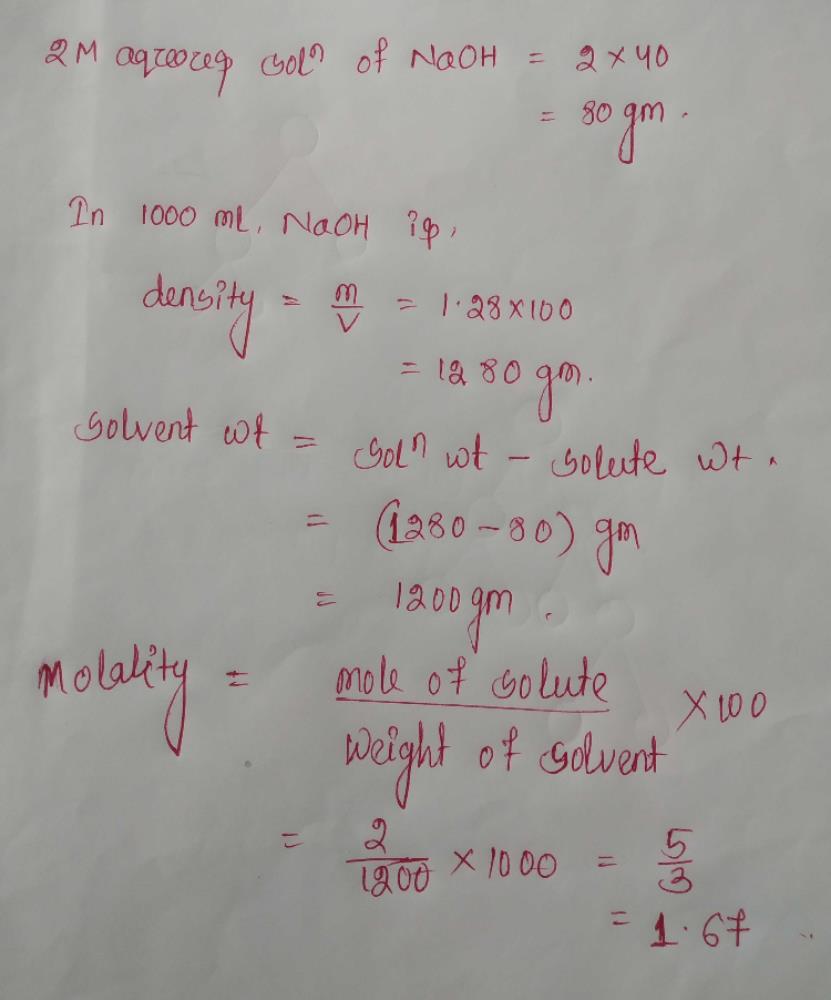 2M aqueous solⁿ of NaOH = 2 × 40
= 80 gm.
In 1000 ml, NaOH is,
density = m/V = 1.28×100
= 1280 gm.
solvent wt = solⁿ wt - solute wt.
= (1280-80) gm
= 1200 gm.
Molality = mole of solute / Weight of solvent × 100
= 2/1200 × 1000 = 5/3
= 1.67